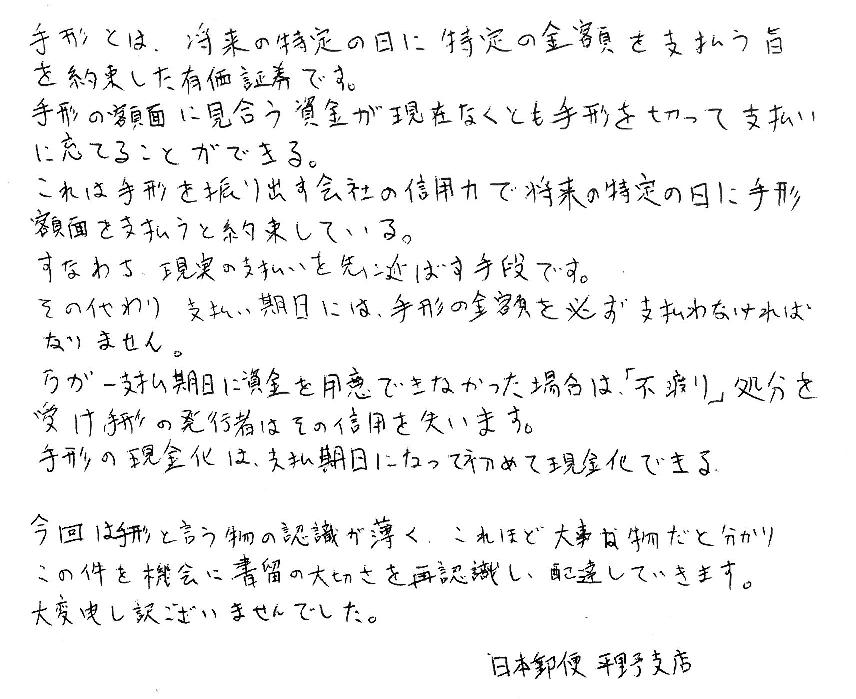 手形とは、将来の特定の日に特定の金額を支払う旨
を約束した有価証券です。
手形の額面に見合う資金が現在なくとも手形を切って支払い
に応てることができる。
これは手形を振り出す会社の信用力で将来の特定の日に手形
額面を支払うと約束している。
すなわち、現実の支払いを先に延ばす手段です。
その代わり 支払い期日には、手形の金額を必ず支払わなければ
なりません。
万が一支払期日に資金を用意できなかった場合は、「不渡り」処分を
受け手形の発行者はその信用を失います。
手形の現金化は、支払期日になって初めて現金化できる
今回は手形と言う物の認識が薄く、これほど大事な物だと分かり
この件を機会に書留の大切さを再認識し、配達していきます。
大変申し訳ございませんでした。
日本郵便 平野支店